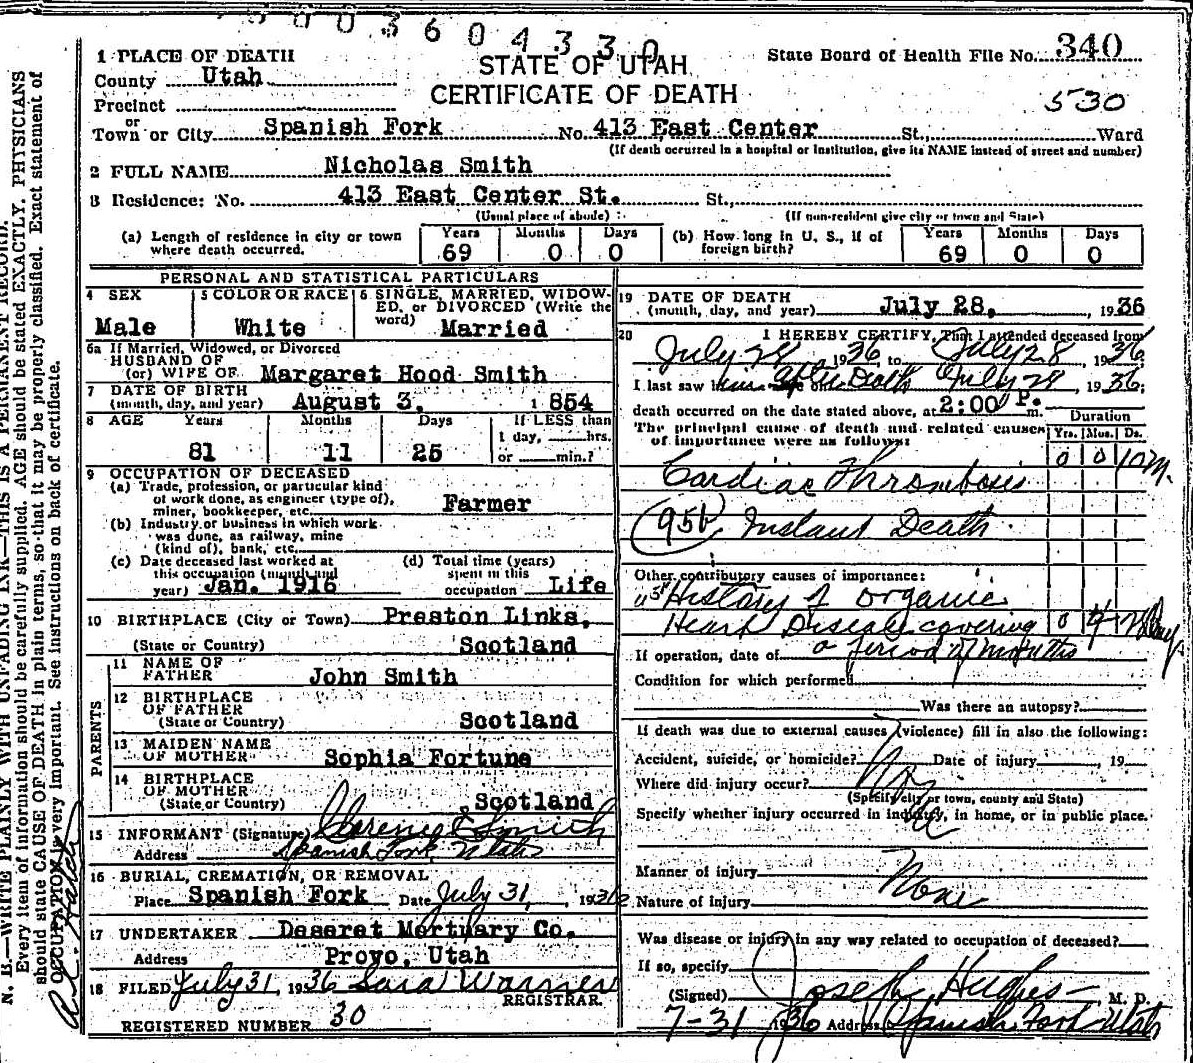 0 0 3 6 0 4 3 3 0
1 PLACE OF DEATH
County Utah
STATE OF UTAH
State Board of Health File No. 340
CERTIFICATE OF DEATH
Precinct
530
or
Town or City Spanish Fork No. 413 East Center St., Ward
(If death occurred in a hospital or institution, give its NAME instead of street and number)
2 FULL NAME Nicholas Smith
3 Residence: No. 413 East Center St. St.,
(Usual place of abode) (If non-resident give city or town and State)
(a) Length of residence in city or town where death occurred. Years 69 Months 0 Days 0
(b) How long in U. S., if of foreign birth? Years 69 Months 0 Days 0
PERSONAL AND STATISTICAL PARTICULARS
4 SEX Male
5 COLOR OR RACE White
6 SINGLE, MARRIED, WIDOW-
ED, or DIVORCED (Write the
word) Married
6a If Married, Widowed, or Divorced
HUSBAND OF
(or) WIFE OF Margaret Hood Smith
7 DATE OF BIRTH
(month, day, and year) August 3, 1854
8 AGE Years 81 Months 11 Days 25
If LESS than
1 day, hrs.
or min.?
9 OCCUPATION OF DECEASED
(a) Trade, profession, or particular kind
of work done, as engineer (type of),
miner, bookkeeper, etc. Farmer
(b) Industry or business in which work
was done, as railway, mine
(kind of), bank, etc.
(c) Date deceased last worked at
this occupation (month and
year) Jan. 1916
(d) Total time (years)
spent in this
occupation Life
10 BIRTHPLACE (City or Town) Preston Links,
(State or Country) Scotland
PARENTS
11 NAME OF
FATHER John Smith
12 BIRTHPLACE
OF FATHER
(State or Country) Scotland
13 MAIDEN NAME
OF MOTHER Sophia Fortune
14 BIRTHPLACE
OF MOTHER
(State or Country) Scotland
15 INFORMANT (Signature) Clarence E Smith
Address Spanish Fork, Utah
16 BURIAL, CREMATION, OR REMOVAL
Place Spanish Fork Date July 31, 1936
17 UNDERTAKER Deseret Mortuary Co.
Address Provo, Utah
18 FILED July 31, 1936 Sara Warner
REGISTRAR.
REGISTERED NUMBER 30
19 DATE OF DEATH
(month, day, and year) July 28, 1936
20 I HEREBY CERTIFY, That I attended deceased from
July 28, 1936 to July 28, 1936
I last saw him after Death July 28, 1936;
death occurred on the date stated above, at 2:00 P. m.
The principal cause of death and related causes
of importance were as follows:
Duration
Yrs. Mos. Ds.
Cardiac Thrombosis 0 0 10 M.
95b Instant Death
Other contributory causes of importance:
History of organic
Heart Disease covering 0 4
a period of months
If operation, date of
Condition for which performed
Was there an autopsy?
If death was due to external causes (violence) fill in also the following:
Accident, suicide, or homicide? Date of injury , 19
Where did injury occur?
(Specify city or town, county and State)
Specify whether injury occurred in industry, in home, or in public place.
Manner of injury
None
Nature of injury
Was disease or injury in any way related to occupation of deceased?
If so, specify
(Signed) Joseph Hughes M. D.
7-31 1936 Address Spanish Fork Utah
N. B.—WRITE PLAINLY WITH UNFADING INK—THIS IS A PERMANENT RECORD.
Every item of information should be carefully supplied. AGE should be stated EXACTLY. PHYSICIANS
should state CAUSE OF DEATH in plain terms, so that it may be properly classified. Exact statement of
OCCUPATION is very important. See instructions on back of certificate.